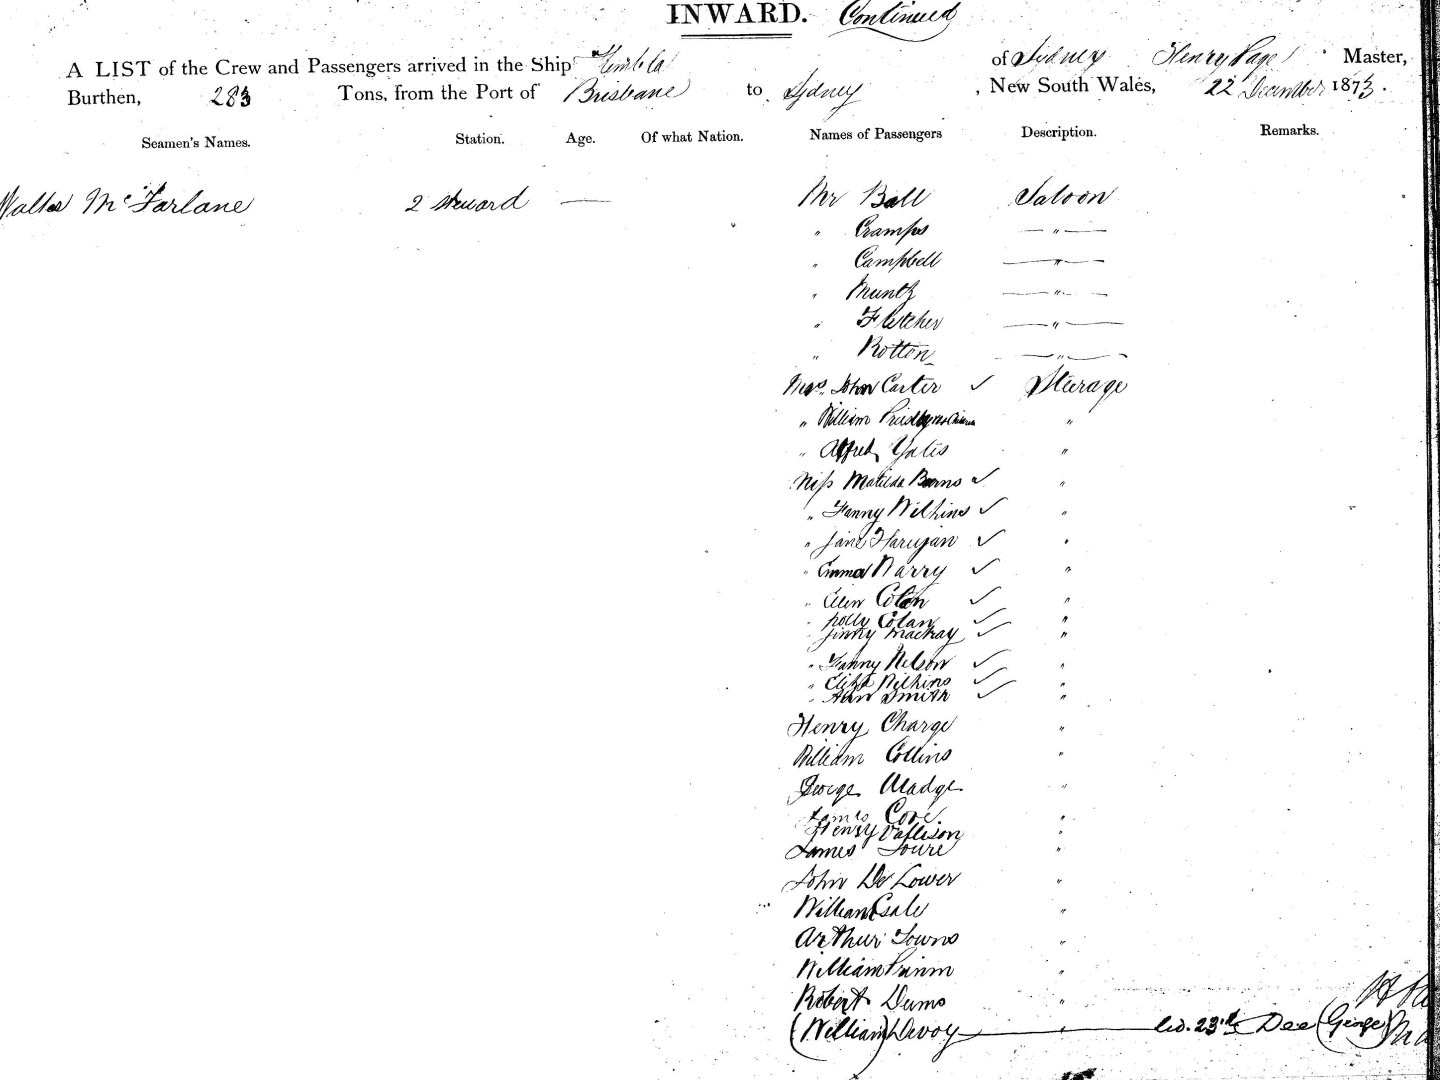 INWARD. Continued
A LIST of the Crew and Passengers arrived in the Ship Kembla of Sydney Henry Page Master,
Burthen, 283 Tons, from the Port of Brisbane to Sydney, New South Wales, 22 December 1873.
Seamen's Names. Station. Age. Of what Nation. Names of Passengers Description. Remarks.
Walter McFarlane 2 Steward — Mr Ball Saloon
" Cramps — " —
" Campbell — " —
" Muntz — " —
" Fletcher — " —
" Rotton — " —
Mrs. John Carter ✓ Steerage
" William "
" Alfred Yates "
Miss Matilda Burns ✓ "
" Fanny Wilkins ✓ "
" Jane ✓ "
" Emma Warry ✓ "
" Ellen Colan ✓ "
" Polly Colan ✓ "
" Jinny Mackay ✓ "
" Fanny Nelson ✓ "
" Eliza Wilkins ✓ "
" Ann Smith ✓ "
Henry Charge "
William Collins "
George Madge "
James "
Henry "
James "
John De Lower "
William "
Arthur Towns "
William "
Robert Dums "
(William) Devoy — " — 23rd Dec (George)